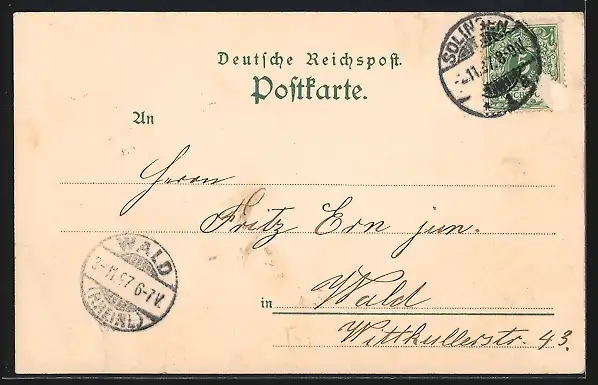 Deutsche Reichspost.
Postkarte.
SOLINGEN
-2.11.97. 8-9N.
An
Herrn
Fritz Ern jun.
WALD
3-11.97 6-7V.
(RHEINL)
in Wald
Wittkullerstr. 43.